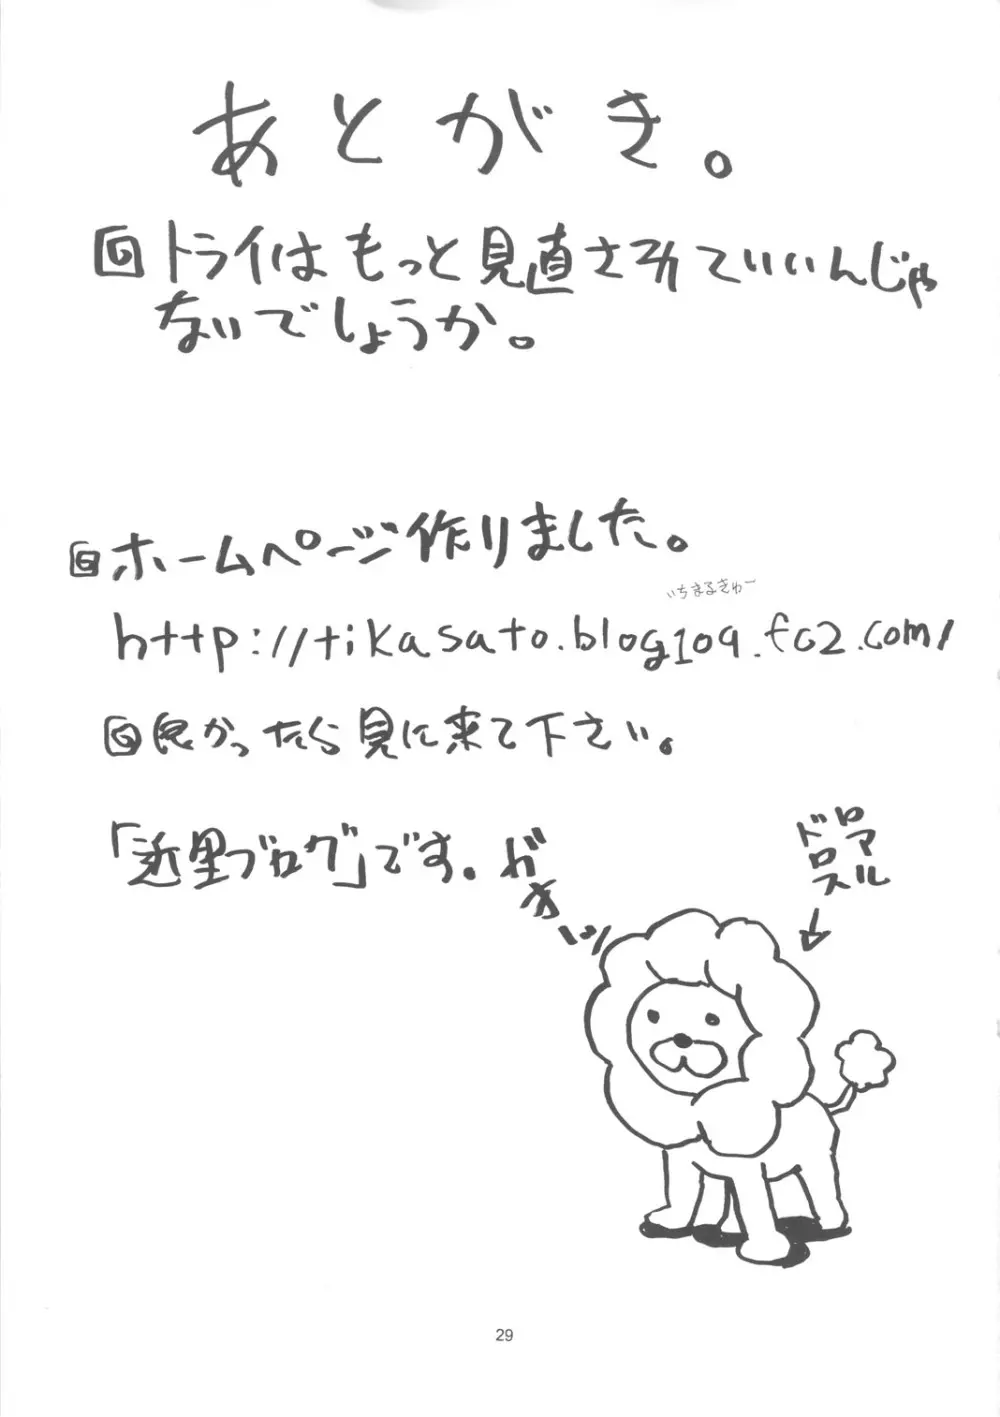 あとがき。
回トライはもっと見直されていいんじゃ
ないでしょうか。
回ホームページ作りました。
いちまるきゅー
http://tikasato.blog109.fc2.com/
回良かったら見に来て下さい。
「近里ブログ」です。
がおーッ
ロマアル
ドロス
29